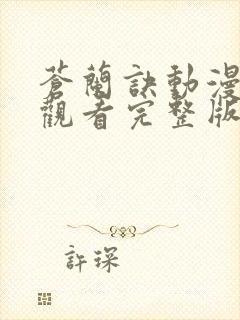 蒼蘭訣動漫
觀看完整版
許琛